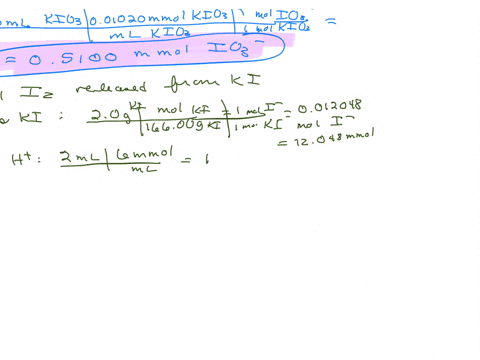 mL KIO3 | 0.01020 mmol KIO3 | 1 mol IO3- =
mL KIO3 | 1 mol KIO3
= 0.5100 mmol IO3-
I2 released from KI
KI : 2.0g KI | mol KI | 1 mol I- = 0.012048
166.00g KI | 1 mol KI mol I-
= 12.048 mmol
H+: 2 mL | 6 mmol = 1
mL